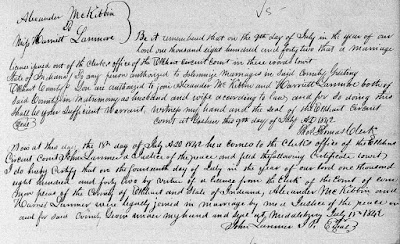 Alexander McKibbin
To
Miss Harriett Larimore
Be it remembered that on the 9th day of July in the year of our
lord one thousand eight hundred and forty two that a marriage
license issued out of the Clerks office of the Elkhart circuit court in these words towit
State of Indiana, To any person authorized to solemnize Marriages in said County Greeting
Elkhart County You are authorized to join Alexander McKibbin and Harriett Larimore both of
said County in Matrimony as husband and wife according to law, and for so doing this
shall be your sufficient Warrant. Witness my hand and the seal of the Elkhart Circuit
Court at Goshen this 9th day of July AD 1842
Seal Thos Thomas Clerk
Now at this day the 18th day of July AD 1842 here comes to the Clerks office of the Elkhart
Circuit Court John Larimore a Justice of the peace and filed the following certificate towit
I do hereby Certify that on the fourteenth day of July in the year of our lord one thousand
eight hundred and forty two by virtue of a license from the Clerk of the Court of
Pleas of the County of Elkhart and State of Indiana, Alexander McKibbin and
Harriet Larimore were legally joined in marriage by me a Justice of the peace in
and for said County Given under my hand and Middlebury July 15th 1842
John Larimore J. P. Seal